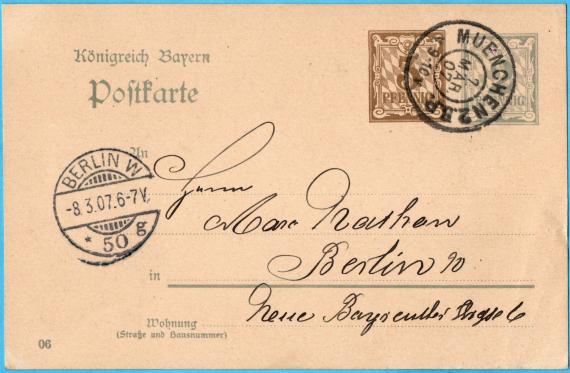 Königreich Bayern
Postkarte
PFENNIG
MUENCHEN 2 B.P.
7 MAR 07
BERLIN W
-8.3.07.6-7V.
* 50 g
An
Herrn
Max Nathan
in
Berlin
Neue Bayreuther
Wohnung
(Straße und Hausnummer)
06